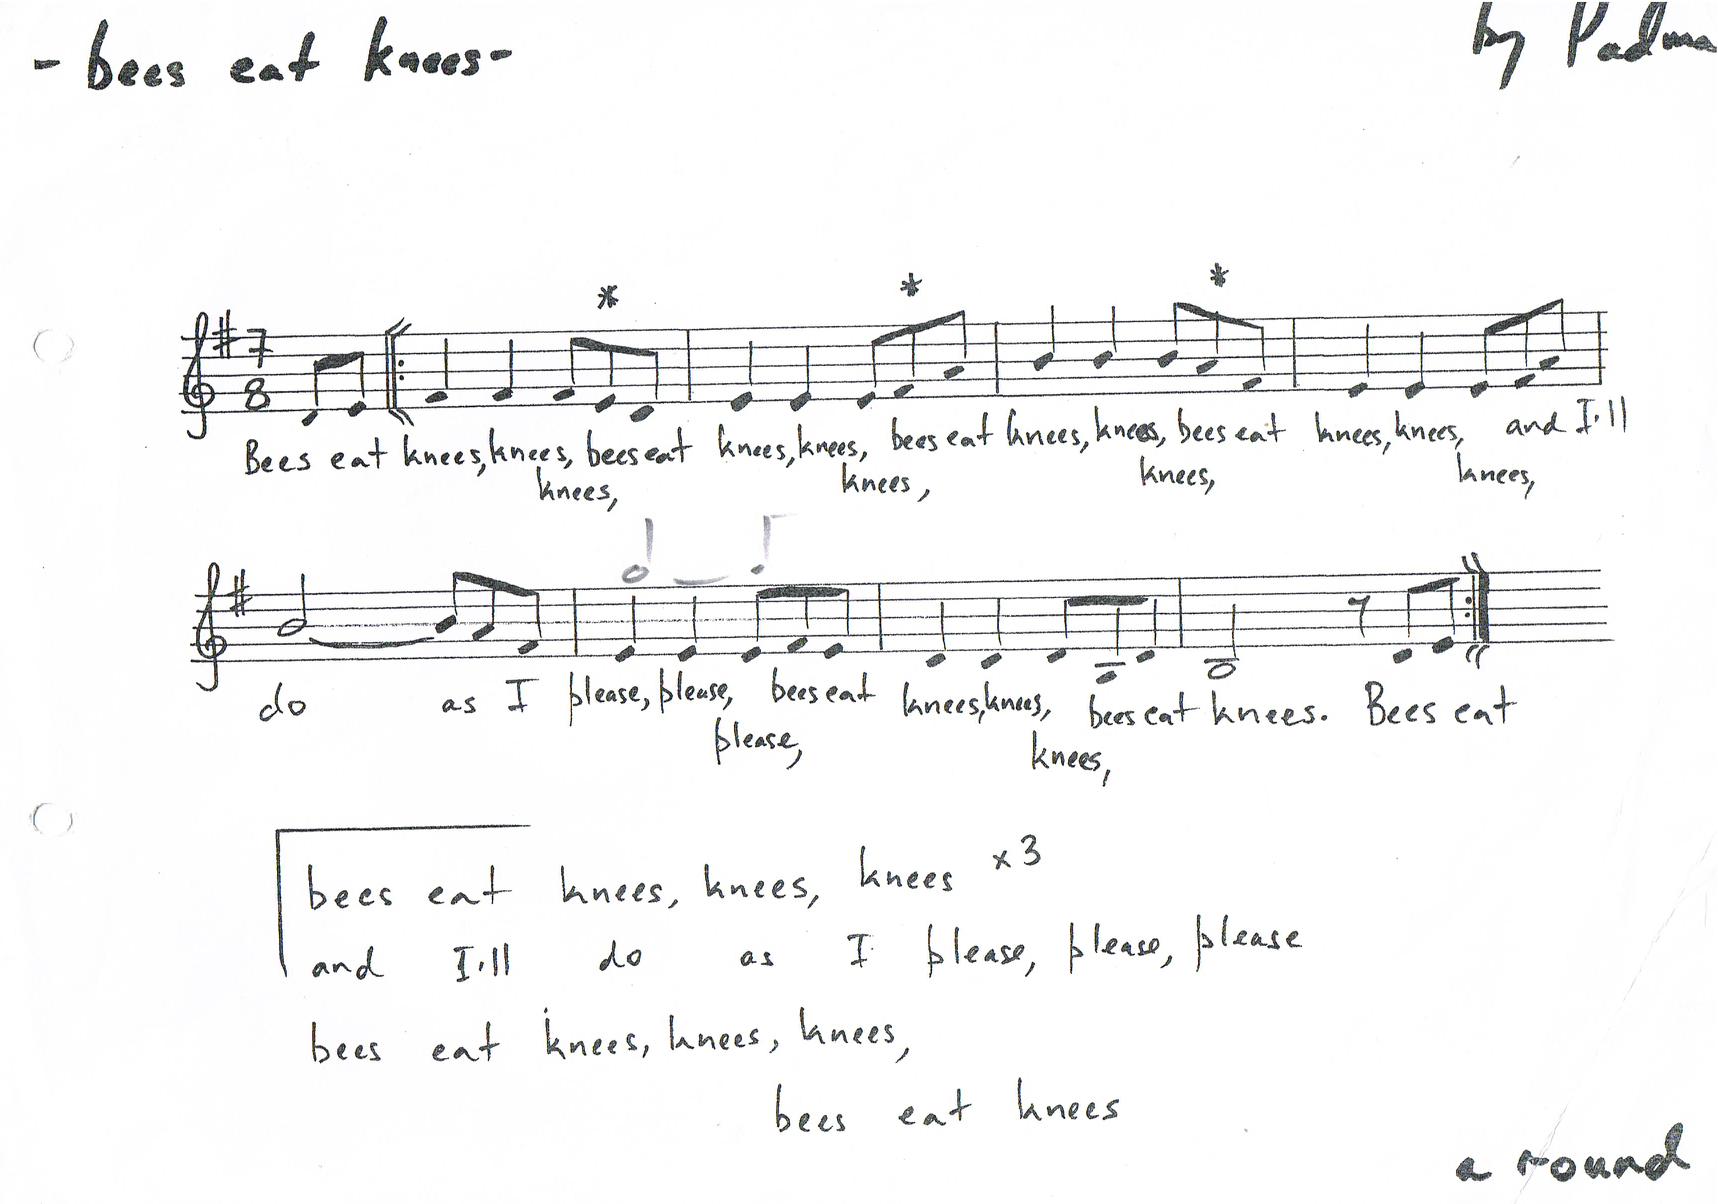 - bees eat knees -
by Padma
*
*
*
7
8
Bees eat knees, knees, bees eat knees, knees, bees eat knees, knees, bees eat knees, knees, and I'll
knees, knees, knees, knees,
do as I please, please, bees eat knees, knees, bees eat knees. Bees eat
please, knees,
bees eat knees, knees, knees x3
and I'll do as I please, please, please
bees eat knees, knees, knees,
bees eat knees
a round